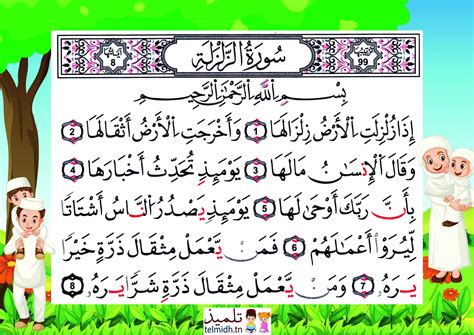 آياتها 8 سُورَةُ الزَّلْزَلَةِ ترتيبها 99
بِسْمِ اللَّهِ الرَّحْمَٰنِ الرَّحِيمِ
إِذَا زُلْزِلَتِ الْأَرْضُ زِلْزَالَهَا 1 وَأَخْرَجَتِ الْأَرْضُ أَثْقَالَهَا 2
وَقَالَ الْإِنسَٰنُ مَا لَهَا 3 يَوْمَئِذٍ تُحَدِّثُ أَخْبَارَهَا 4
بِأَنَّ رَبَّكَ أَوْحَىٰ لَهَا 5 يَوْمَئِذٍ يَصْدُرُ النَّاسُ أَشْتَاتًا
لِّيُرَوْا أَعْمَٰلَهُمْ 6 فَمَن يَعْمَلْ مِثْقَالَ ذَرَّةٍ خَيْرًا
يَرَهُ 7 وَمَن يَعْمَلْ مِثْقَالَ ذَرَّةٍ شَرًّا يَرَهُ 8
تلميذ
telmidh.tn